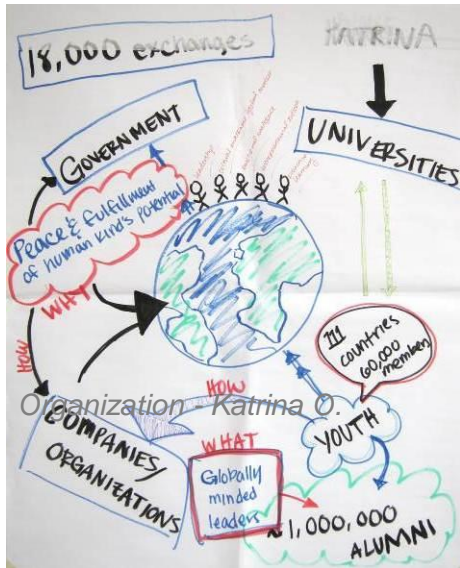 18,000 exchanges
KATRINA
GOVERNMENT
UNIVERSITIES
Peace & fulfillment
of human kind's potential
WHAT
HOW
111
countries
60,000
members
HOW
Organization - Katrina O.
YOUTH
COMPANIES/
ORGANIZATIONS
WHAT
Globally
minded
leaders
~1,000,000
ALUMNI